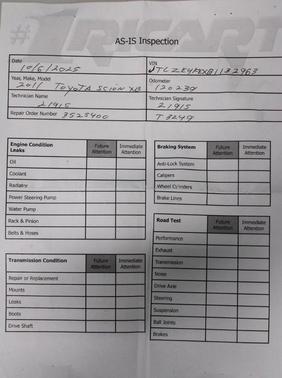 AS-IS Inspection
Date
10/6/2025
VIN
Year, Make, Model
2011 TOYOTA SCION XB
Odometer
120239
Technician Name
21915
Technician Signature
21915
Repair Order Number 3523400
T3249
Engine Condition Future Attention Immediate Attention
Leaks
Oil
Coolant
Radiator
Power Steering Pump
Water Pump
Rack & Pinion
Belts & Hoses
Transmission Condition Future Attention Immediate Attention
Repair or Replacement
Mounts
Leaks
Boots
Drive Shaft
Braking System Future Attention Immediate Attention
Anti-Lock System
Calipers
Wheel Cylinders
Brake Lines
Road Test Future Attention Immediate Attention
Performance
Exhaust
Transmission
Noise
Drive Axle
Steering
Suspension
Ball Joints
Brakes